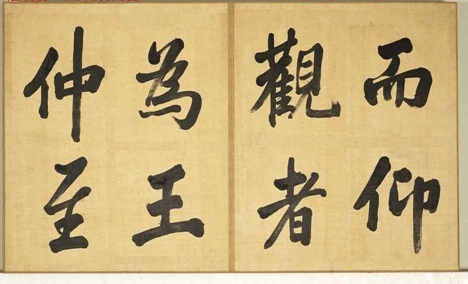 而仰
觀者
為王
仲至